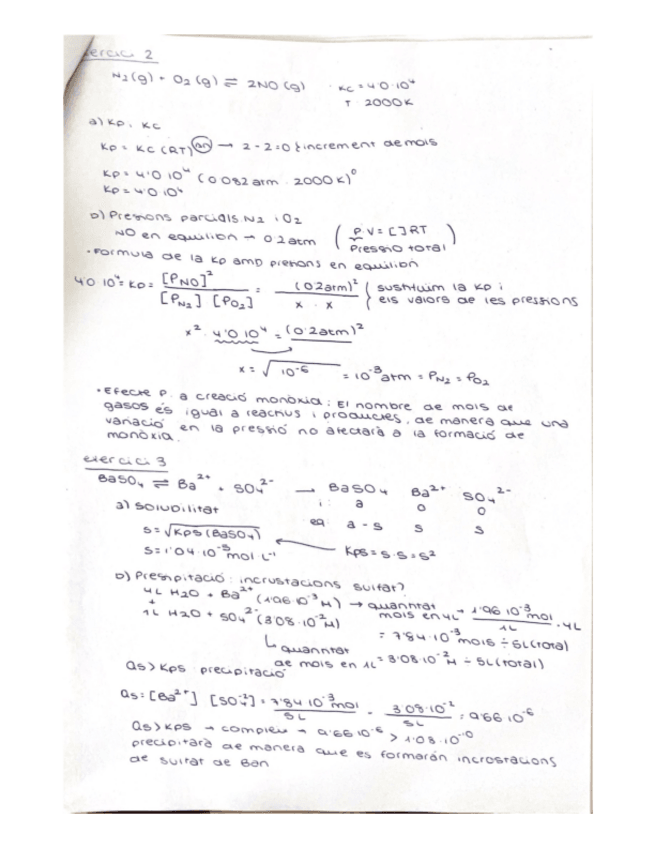 exercici 2
N₂(g) + O₂(g) ⇌ 2NO(g) Kc = 4'0·10⁴
T 2000K
a) Kp, Kc
Kp = Kc (RT)^Δn → 2-2=0 } increment de mols
Kp = 4'0·10⁴ (0'082 atm · 2000 K)⁰
Kp = 4'0·10⁴
b) Pressions parcials N₂ i O₂
NO en equilibri → 0'2 atm ( P V = [ ] RT
Pressió total )
· Formula de la Kp amb pressions en equilibri
4'0·10⁴ = Kp = [P_NO]² / [P_N₂] [P_O₂] = (0'2atm)² / x · x } sustituim la Kp i
els valors de les pressions
x² · 4'0·10⁴ = (0'2atm)²
x = √10⁻⁶ = 10⁻³ atm = P_N₂ = P_O₂
· Efecte P. a creació monòxid: El nombre de mols de
gasos és igual a reactius i productes, de manera que una
variació en la pressió no afectarà a la formació de
monòxid.
exercici 3
BaSO₄ ⇌ Ba²⁺ + SO₄²⁻ → BaSO₄ Ba²⁺ SO₄²⁻
i: a 0 0
a) Solubilitat
eq: a-s s s
s = √Kps(BaSO₄)
Kps = s·s = s²
s = 1'04·10⁻⁵ mol·L⁻¹
b) Precipitació: incrustacions sulfat?
4L H₂O + Ba²⁺ (1'96·10⁻³ M) → quantitat
mols en 4L → 1'96·10⁻³ mol / 1L · 4L
+
1L H₂O + SO₄²⁻ (3'08·10⁻² M) = 7'84·10⁻³ mols ÷ 5L (total)
↳ quantitat
de mols en 1L = 3'08·10⁻² M ÷ 5L (total)
Qs > Kps precipitació
Qs = [Ba²⁺] [SO₄²⁻] = 7'84·10⁻³ mol / 5L · 3'08·10⁻² / 5L = 9'66·10⁻⁶
Qs > Kps → compleix → 9'66·10⁻⁶ > 1'08·10⁻¹⁰
precipitarà de manera que es formaràn incrostacions
de sulfat de Bari